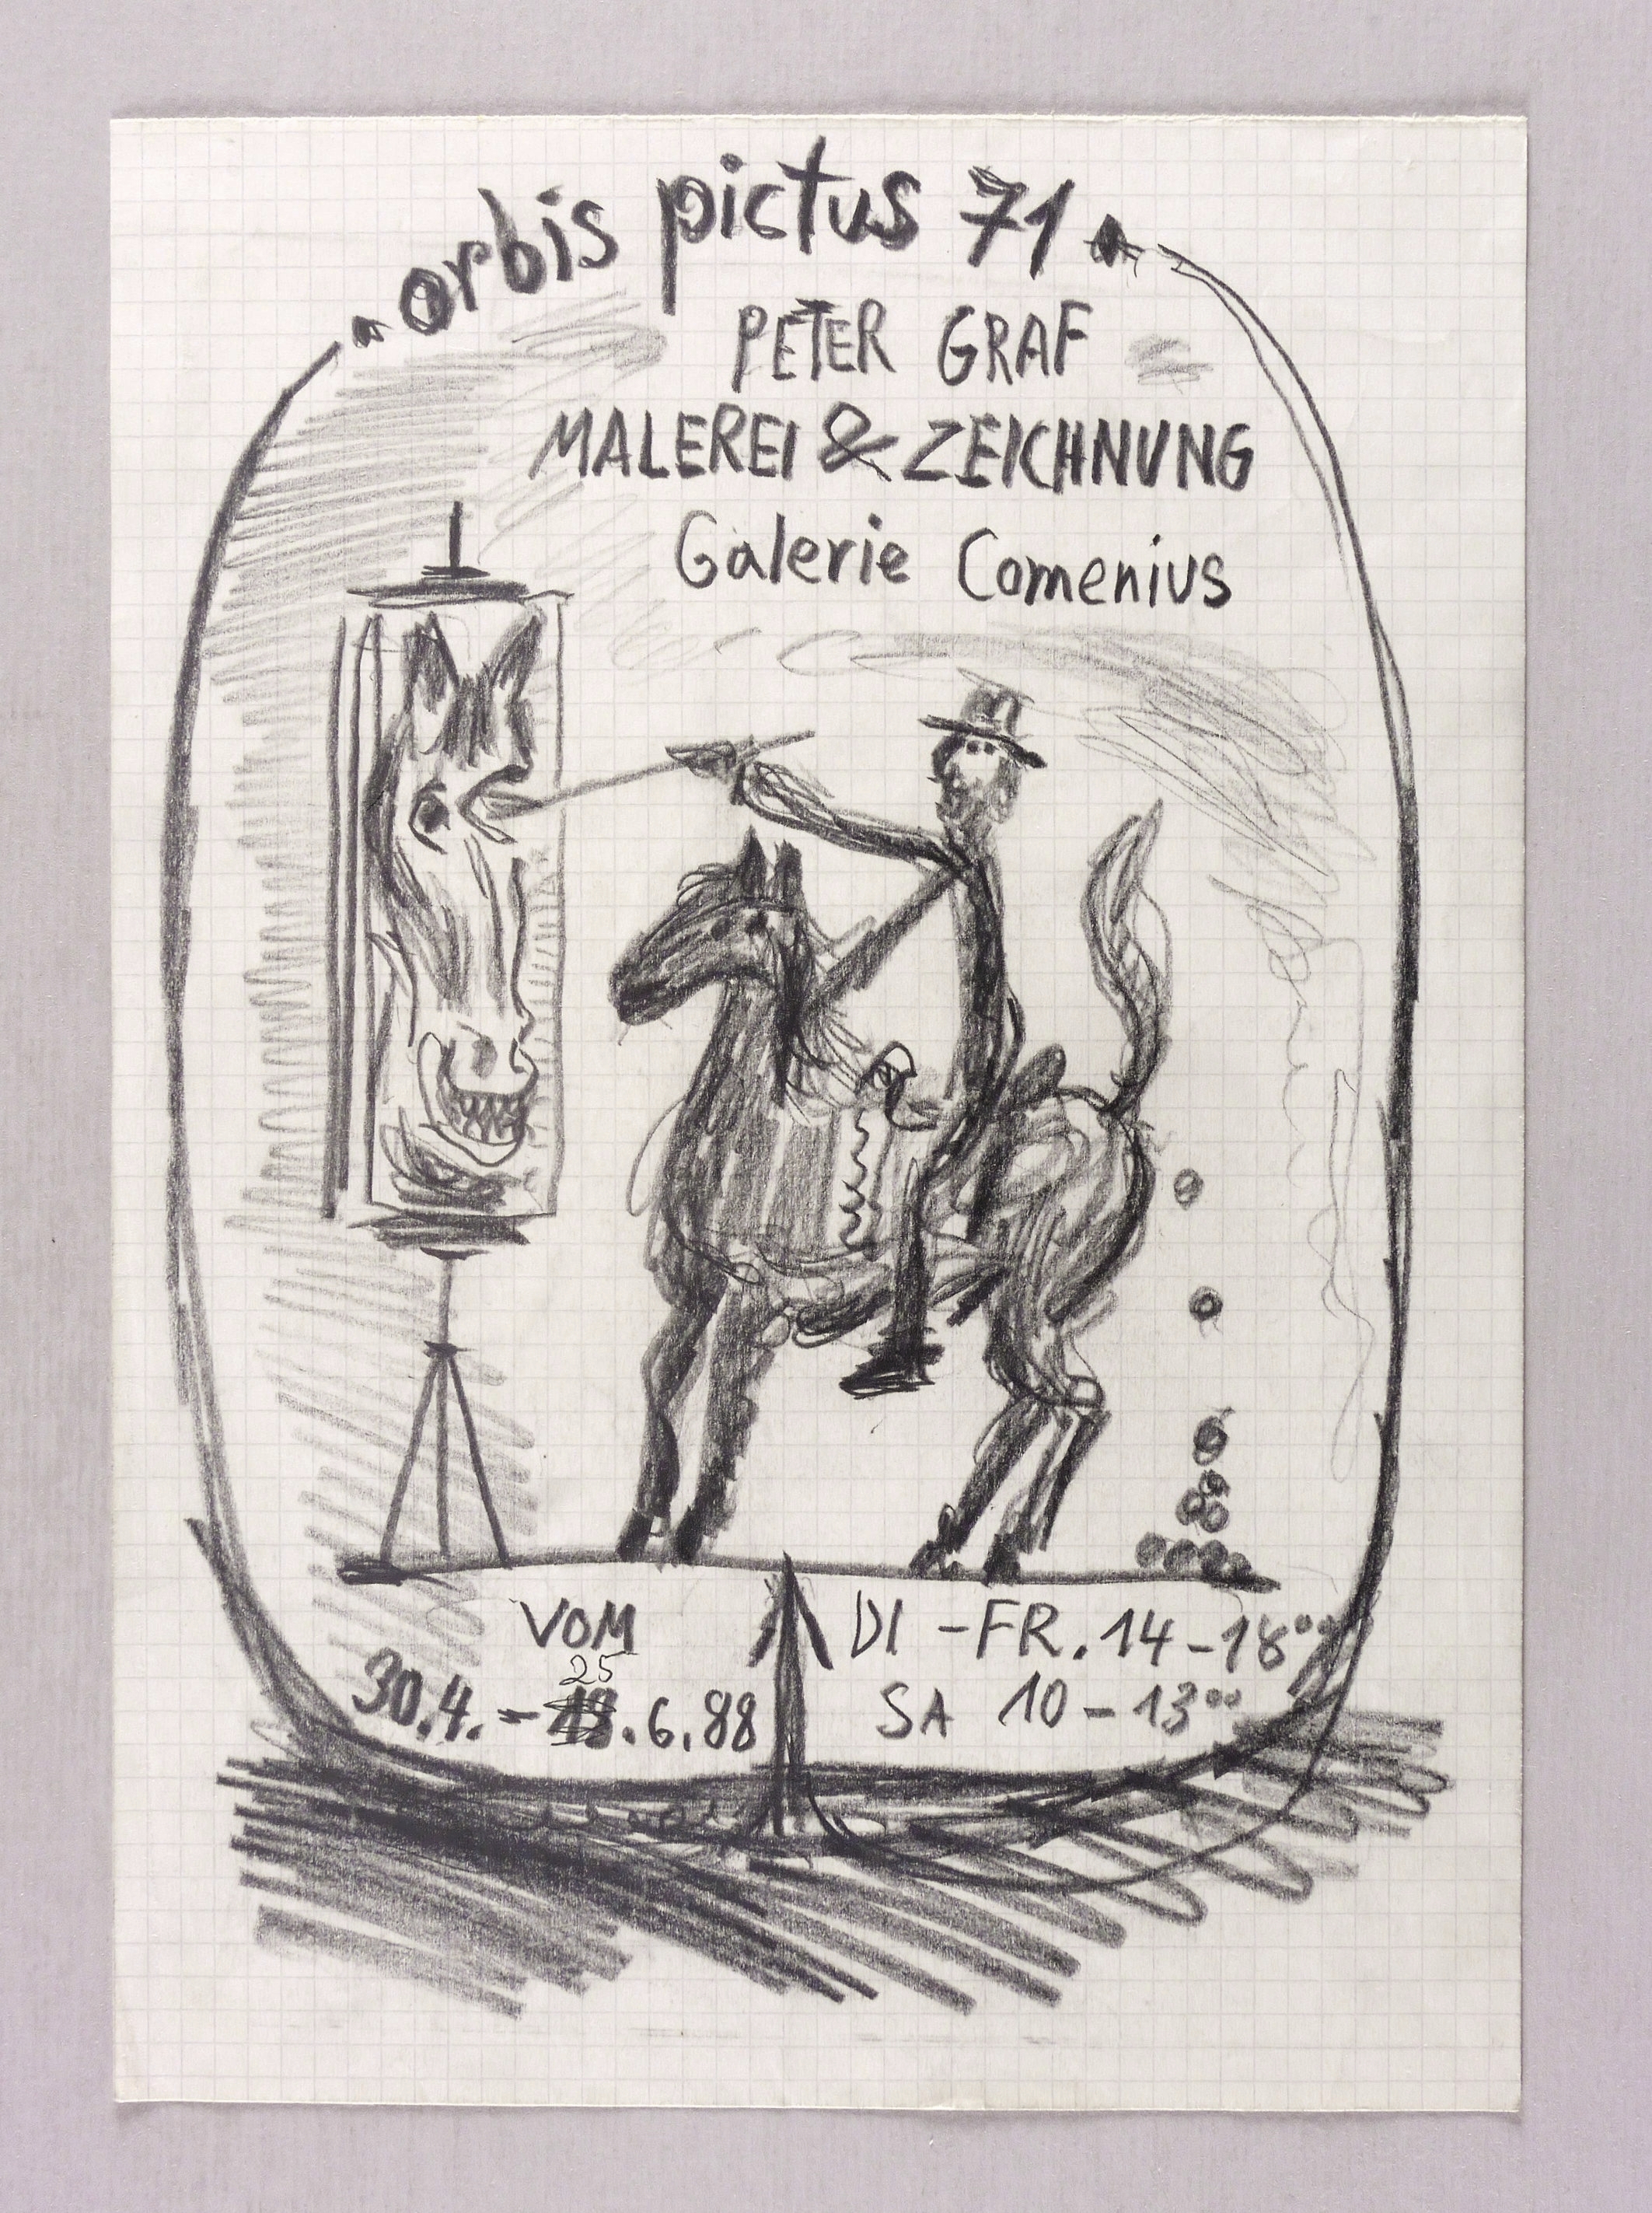 orbis pictus 71
PETER GRAF
MALEREI & ZEICHNUNG
Galerie Comenius
VOM
25
30.4. - 18.6.88
DI - FR. 14 - 18⁰⁰
SA 10 - 13⁰⁰